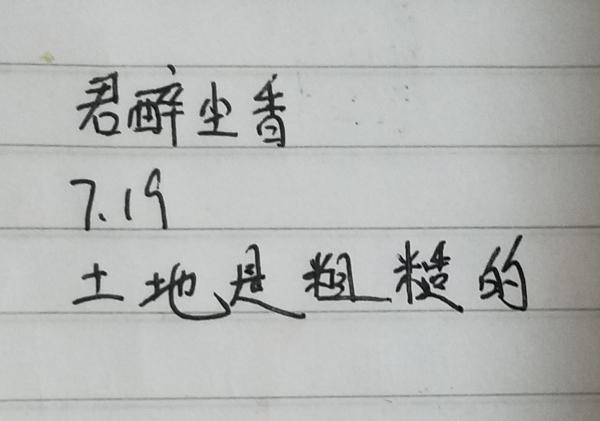 君醉尘香
7.19
土地是粗糙的